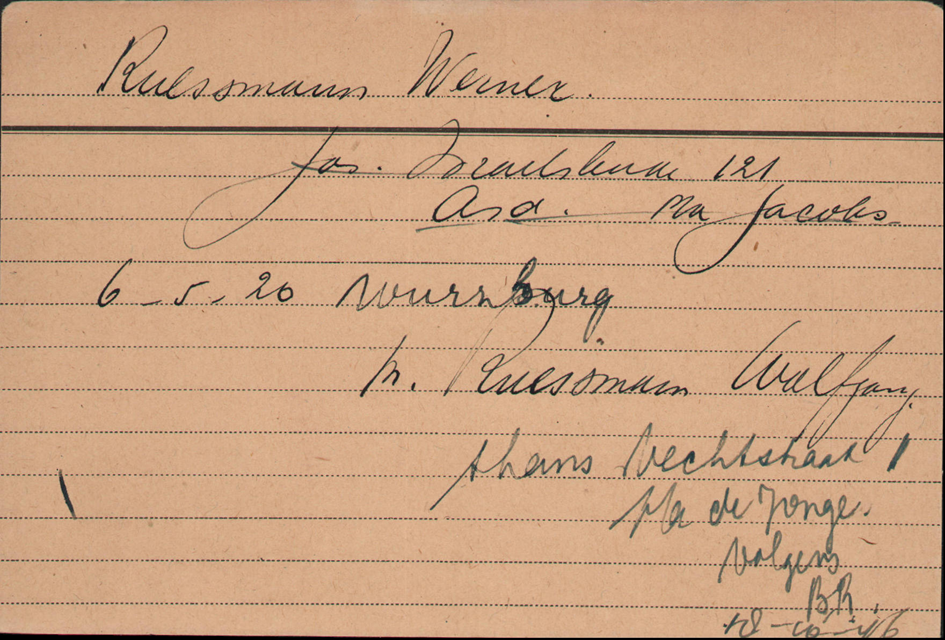 Ruessmann Werner.
Jos. Israelskade 121
Asd. p/a Jacobs
6-5-20 Wurzburg
Ruessmann Wolfgang.
thans Vechtstraat 1
p/a de Jonge.
volgens
BR.